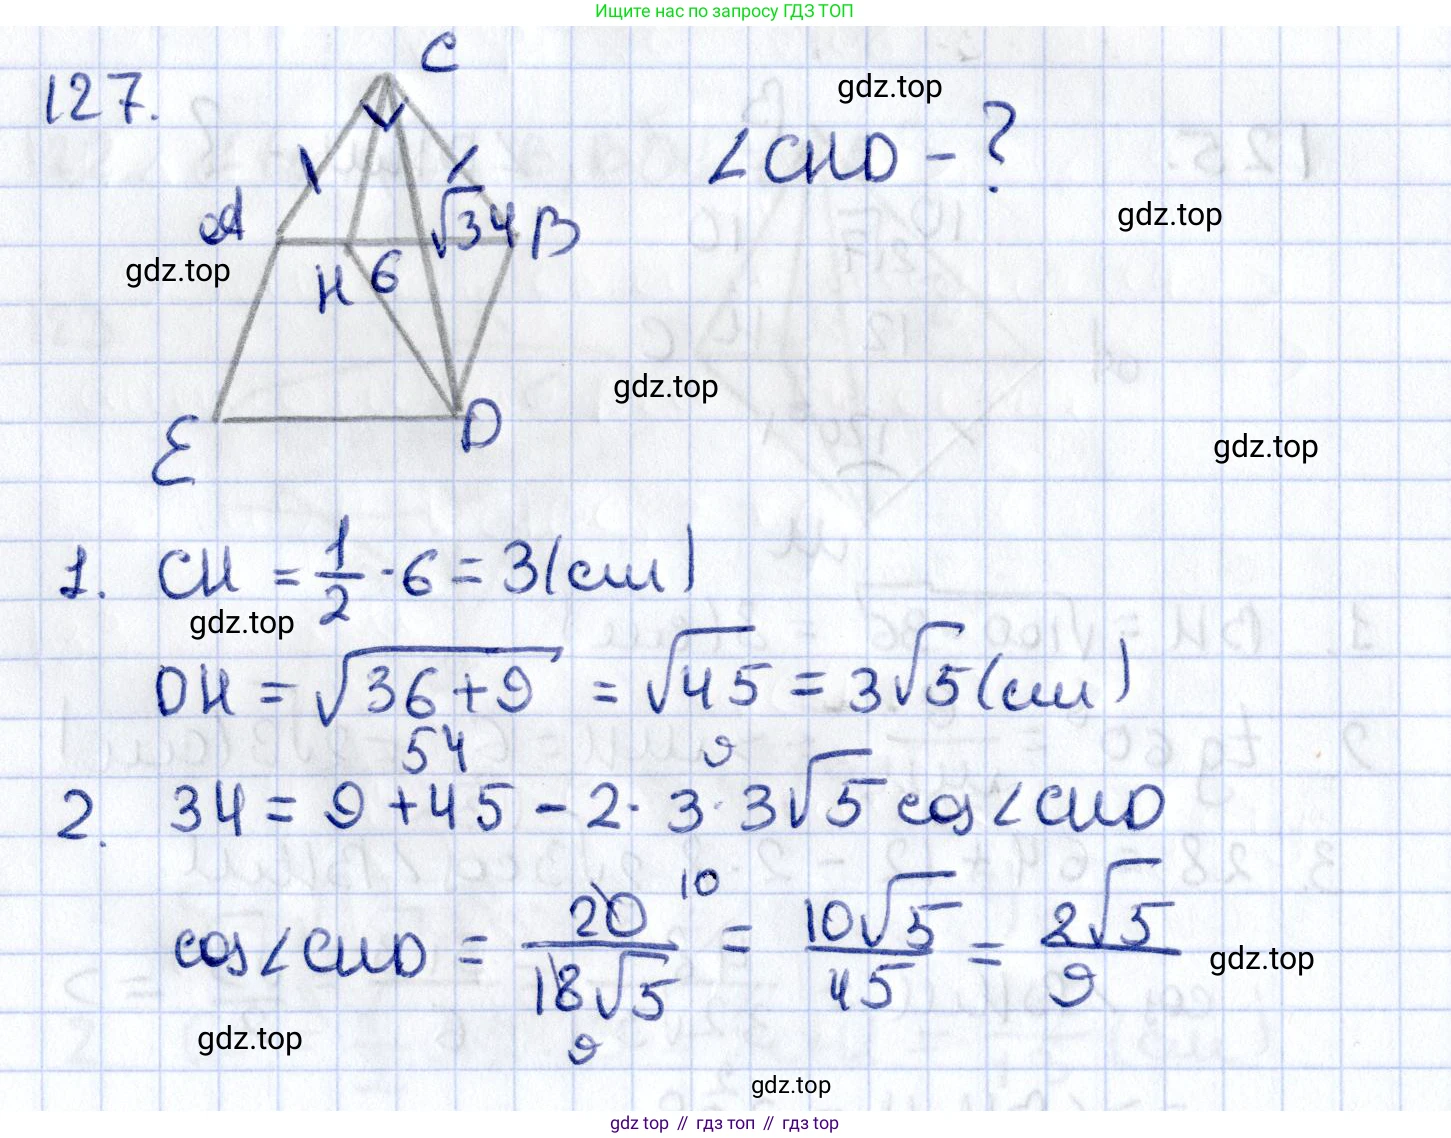 Ищите нас по запросу ГДЗ ТОП
127.
C
gdz.top
∠CHD - ?
A
√34
B
gdz.top
gdz.top
H
6
gdz.top
gdz.top
E
D
1. CH = 1/2 · 6 = 3 (см)
gdz.top
DH = √36+9 = √45 = 3√5 (см)
54
9
2. 34 = 9 + 45 - 2 · 3 · 3√5 cos∠CHD
cos∠CHD = 20/18√5 = 10√5/45 = 2√5/9
10
9
gdz.top
gdz.top
gdz.top
gdz top // гдз топ // гдз top